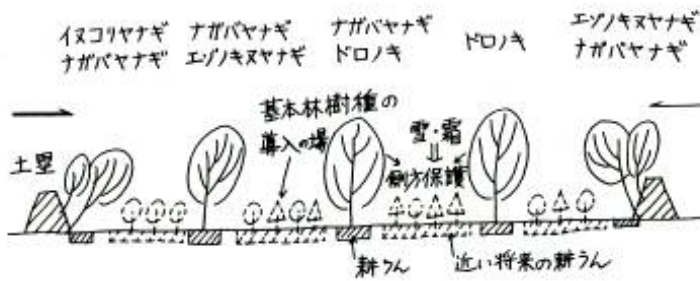 イヌコリヤナギ
ナガバヤナギ
ナガバヤナギ
エゾノキヌヤナギ
ナガバヤナギ
ドロノキ
ドロノキ
エゾノキヌヤナギ
ナガバヤナギ
基本林樹種の
導入の場
雪・霜
側方保護
土塁
耕うん
近い将来の耕うん